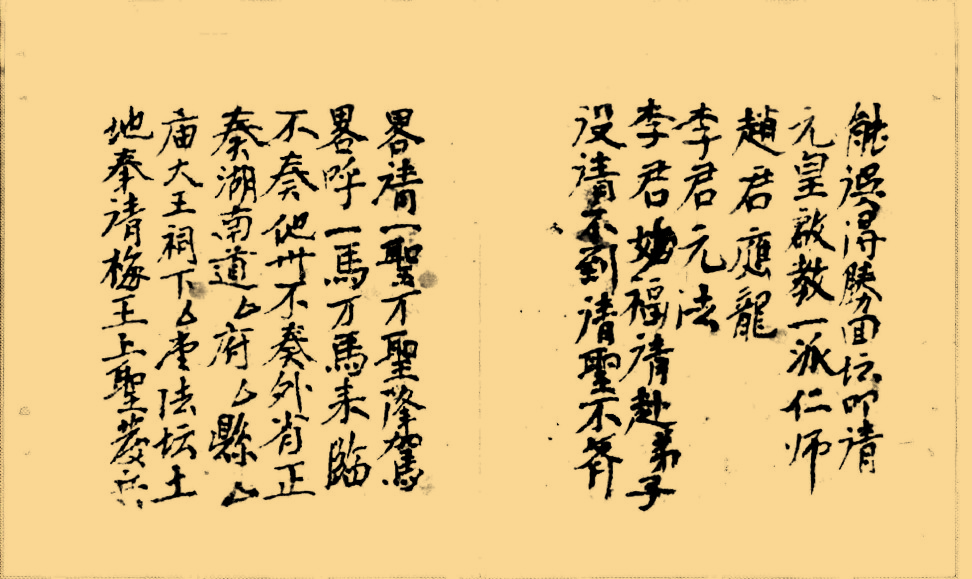 能误淂勝囬坛叩请
元皇啟教一派仁师
趙君應龍
李君元法
李君妙福請赴弟子
没請不到請聖不齊
畧請一聖万聖降駕
畧呼一馬万馬来臨
不奏他卅不奏外省正
奏湖南道厶府厶縣厶
庙大王祠下厶堂法坛土
地奉請梅王上聖發兵